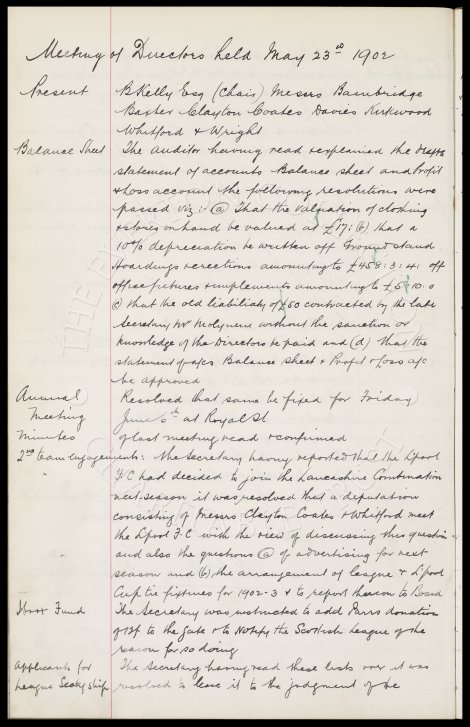 Meeting of Directors held May 23rd 1902
Present B Kelly Esq (Chair) Messrs Bainbridge
Baxter Clayton Coates Davies Kirkwood
Whitford & Wright
Balance Sheet The auditor having read & explained the drafts
statement of accounts Balance sheet and Profit
& Loss account the following resolutions were
passed viz:- (a) That the valuation of clothing
& stores in hand be valued at £17: (b) that a
10% depreciation be written off Ground stand
Hoardings & erections amounting to £458:3:4: off
office fixtures & implements amounting to £5:10:0
(c) that the old liability of £50 contracted by the late
Secretary Mr Molyneux without the sanction or
knowledge of the Directors be paid and (d) that the
statement of a/cs Balance Sheet & Profit & Loss a/c
be approved
Annual Resolved that same be fixed for Friday
Meeting June 6th at Royal St
Minutes of last meeting read & confirmed
2nd team engagements: The Secretary having reported that the Lpool
F.C had decided to join the Lancashire Combination
next season it was resolved that a deputation
consisting of Messrs Clayton Coates & Whitford meet
the L'pool F.C with the view of discussing this question
and also the questions (a) of advertising for next
season and (b) the arrangement of league & L'pool
Cup tie fixtures for 1902-3 & to report thereon to Board
Ibrox Fund The Secretary was instructed to add Parrs donation
of to the gate & to Notify the Scottish League of the
reason for so doing
Applicants for The Secretary having read these lists over it was
League Secty ship resolved to leave it to the judgment of the